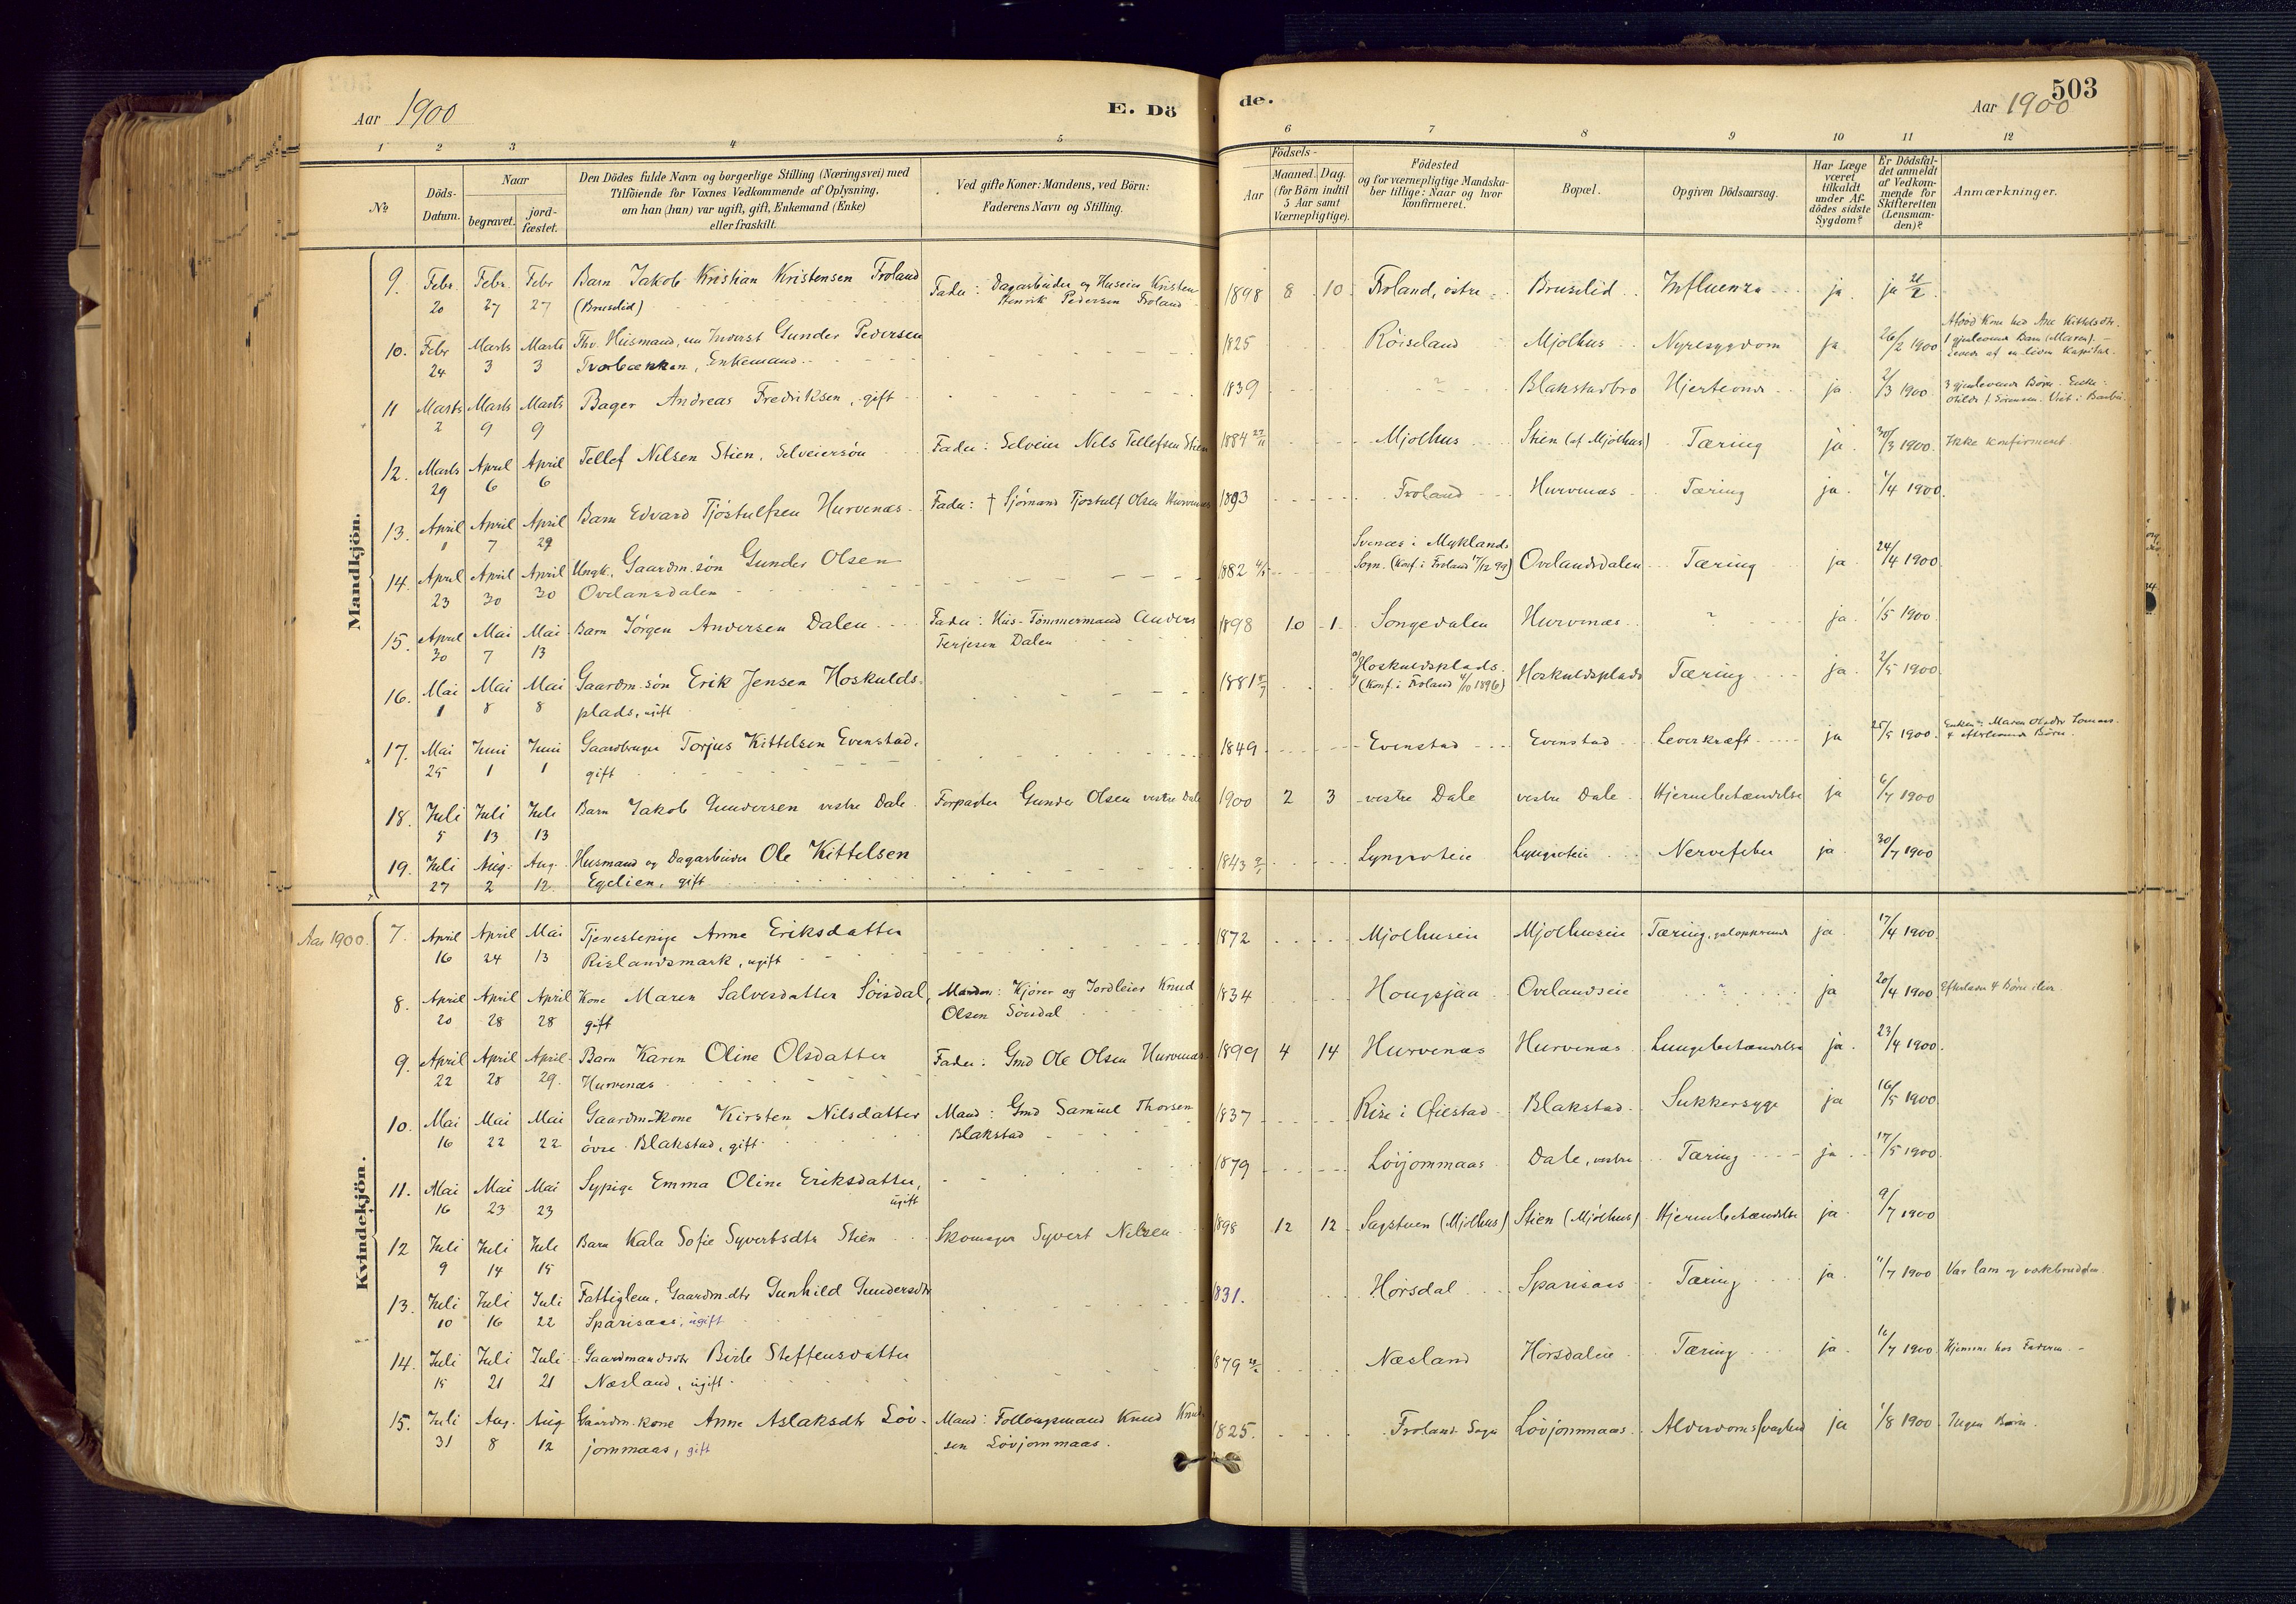 Aar 1900
E. Dö
de.
503
Aar 1900
1 2 3 4 5 6 7 8 9 10 11 12
No
Döds-Datum.
Naar
begravet.
jord-fæstet.
Den Dödes fulde Navn og borgerlige Stilling (Næringsvei) med
Tilföiende for Voxnes Vedkommende af Oplysning,
om han (hun) var ugift, gift, Enkemand (Enke)
eller fraskilt.
Ved gifte Koner: Mandens, ved Börn:
Faderens Navn og Stilling.
Födsels-
Aar
Maaned. Dag.
(for Börn indtil
5 Aar samt
Værnepligtige).
Födested
og for værnepligtige Mandska-
ber tillige: Naar og hvor
konfirmeret.
Bopæl.
Opgiven Dödsaarsag.
Har Læge
været
tilkaldt
under Af-
dödes sidste
Sygdom?
Er Dödsfal-
det anmeldt
af Vedkom-
mende for
Skifteretten
(Lensman-
den)?
Anmærkninger.
Mandkjön.
9. Febr. 20 Febr. 27 Febr 27 Barn Jakob Kristian Kristensen Froland
(Bruslid)
Fader: Dagarbeider og Huseier Kristen
Henrik Pedersen Froland
1898 8 10 Froland, östre Bruslid Influenza ja ja 21/2
10. Febr 24 Marts 3 Marts 3 Fhv. Husmand, nu Inderst Gunder Pedersen
Tvorbækken, Enkemand
1825 Rörseland Mjolhus Nyresygdom ja 26/2 1900
1 gjenlevende Barn (Maren).
Levede af en liden Kapital.
11 Marts 2 Marts 9 Marts 9 Bager Andreas Fredriksen, gift
1839 ? Blakstadbro Hjerteonde ja 2/3 1900
3 gjenlevende Börn. Enke:
12. Marts 29 April 6 April 6 Tellef Nilsen Stien, Selveiersön
Fader: Selveier Nils Tellefsen Stien
1884 27/11 Mjolhus Stien (af Mjolhus) Tæring ja 30/3 1900. Ikke konfirmeret
13. April 1 April 7 April 29 Barn Edvard Tjöstulfsen Hurvenæs
Fader: † Sjömand Tjöstulf Olsen Hurvenæs
1893 Froland Hurvenæs Tæring ja 1/4 1900.
14. April 23 April 30 April 30 Ungk., Gaardm.sön Gunder Olsen
Ovelansdalen
1882 Svenæs i Myklands
Sogn. (Konf. i Froland 17/12 99) Ovelandsdalen Tæring ja 24/4 1900
15. April 30 Mai 7 Mai 13 Barn Jörgen Andersen Dalen
Fader: Hus-Tömmermand Anders
Terjesen Dalen
1898 10 1 Songedalen Hurvenæs ? ja 1/5 1900
16. Mai 1 Mai 8 Mai 8 Gaardm.sön Erik Jensen Hoskulds-
plads, ugift
1881 Hoskuldsplads
(Konf. i Froland 4/10 1896) Hoskuldsplads Tæring ja 2/5 1900
17. Mai 25 Juni 1 Juni 1 Gaardbruger Torjus Kittelsen Evenstad,
gift
1849 Evenstad Evenstad Leverkræft ja 25/5 1900
4 efterlevende Börn.
18. Juli 5 Juli 13 Juli 13 Barn Jakob Gundersen vestre Dale
Forpagter Gunder Olsen vestre Dale
1900 2 3 vestre Dale vestre Dale Hjernebetændelse ja 6/7 1900
19. Juli 27 Aug. 2 Aug. 12. Husmand og Dagarbeider Ole Kittelsen
Egelien, gift
1843 Lyngroteie Lyngroteie Nervefeber ja 30/7 1900
Kvindekjön.
Aar 1900.
7. April 16 April 24 Mai 13 Tjenestepige Anne Eriksdatter
Rislandsmark, ugift
1872 Mjolhuseie Mjolhuseie Tæring, galopperende ja 17/4 1900.
8. April 20 April 28 April 28 Kone Maren Salvesdatter Söisdal,
gift
Manden: Kjörer og Jordleier Knud
Olsen Söisdal
1834 Hougsjaa Ovelandseie ? ja 20/4 1900 Efterlader 4 Börn
9. April 22 April 28 April 29. Barn Karen Oline Olsdatter
Hurvenæs
Fader: Gmd Ole Olsen Hurvenæs
1899 4 14 Hurvenæs Hurvenæs Lungebetændelse ja 23/4 1900.
10. Mai 16 Mai 22 Mai 22 Gaardm-kone Kirsten Nilsdatter
övre Blakstad, gift
Mand: Gmd Samuel Thorsen
Blakstad
1837 Rise i Öiestad Blakstad Sukkersyge ja 16/5 1900
11. Mai 16 Mai 23 Mai 23 Sypige Emma Oline Eriksdatter,
ugift
1879 Lövjommaas Dale, vestre Tæring ja 17/5 1900.
12 Juli 9 Juli 14 Juli 15 Barn Kala Sofie Syvertsdtr Stien
Skomager Syvert Nilsen
1898 12 12 Sagstuen (Mjolhus) Stien (Mjölhus) Hjernebetændelse ja 9/7 1900
13. Juli 10 Juli 16 Juli 22 Fattiglem, Gaardm.dtr Gunhild Gundersdtr
Sparisaas, ugift
1831. Hörsdal Sparisaas Tæring ja 11/7 1900 Var lam og vækbrudden.
14. Juli 15 Juli 21 Juli 21 Gaardmandsdtr Birte Steffensdatter
Næsland, ugift
1879 Næsland Hörsdaleie Tæring ja 16/7 1900 Hjemme hos Faderen
15. Juli 31 Aug. 8 Aug 12 Gaardm.kone Anne Aslaksdtr Löv-
jommaas, gift
Mand: Follougsmand Knud Knud-
sen Lövjommaas.
1825. Froland Sogn Lövjommaas Alderdomssvaghed ja 1/8 1900 Ingen Börn.